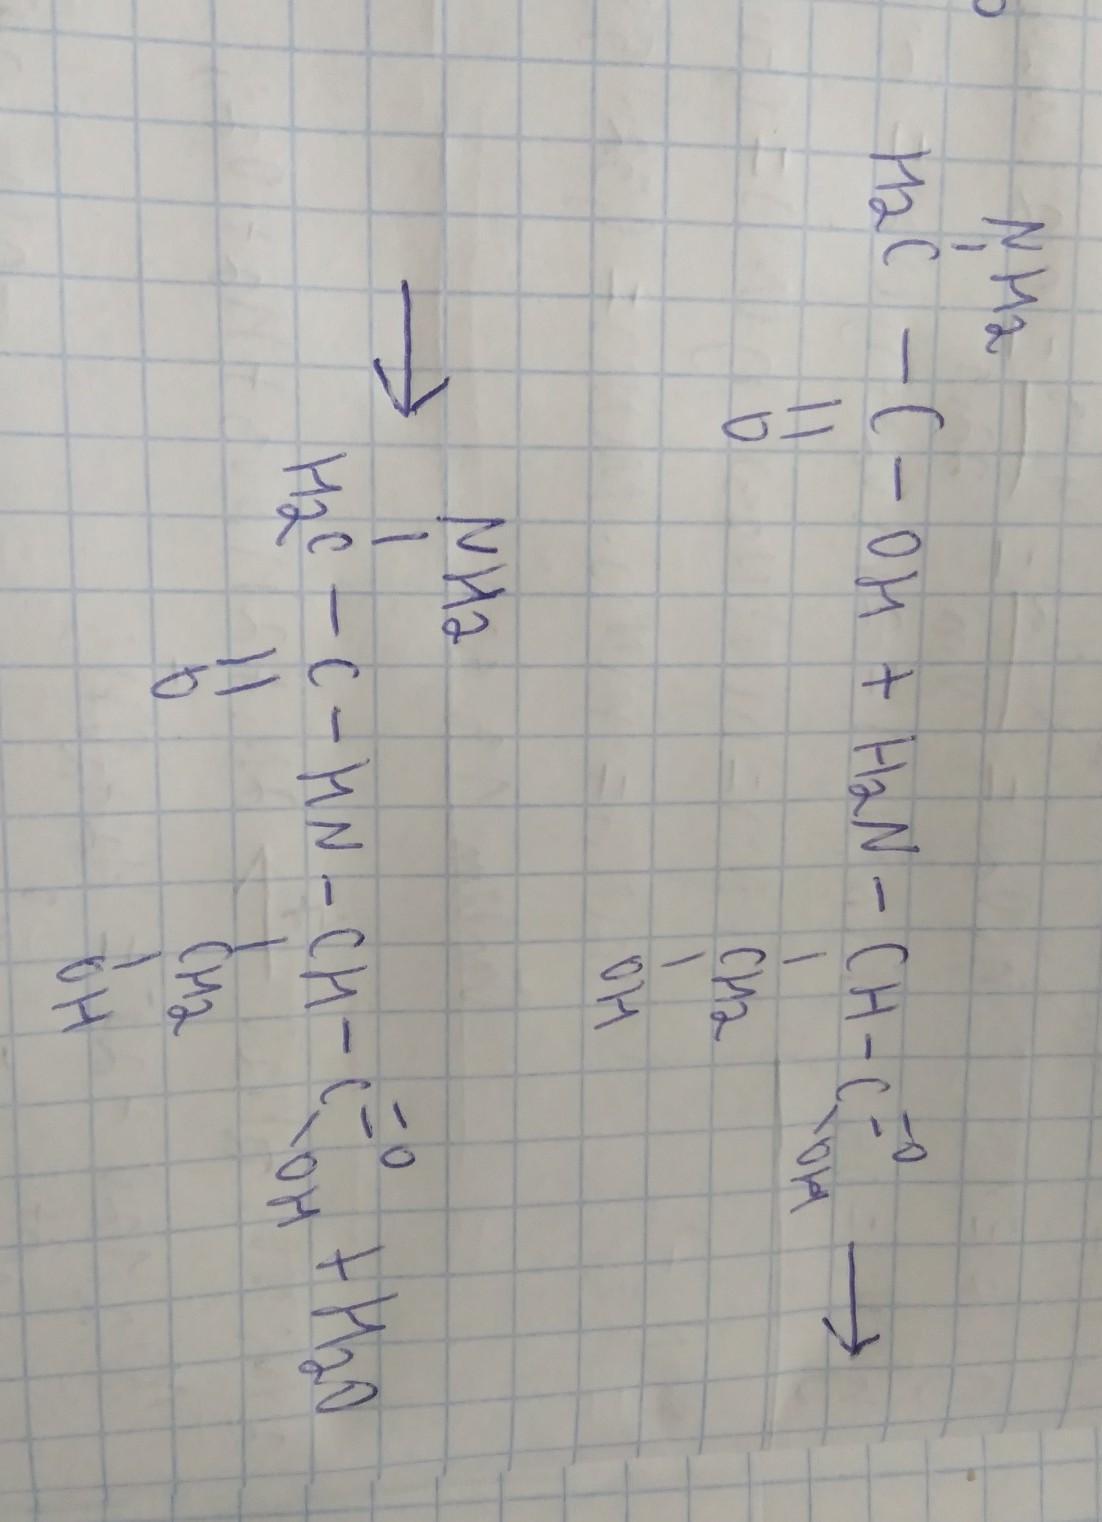 NH2
H2C - C - OH + H2N - CH - C = O →
O CH2 OH
OH
NH2
→ H2C - C - HN - CH - C = O + H2O
O CH2 OH
OH